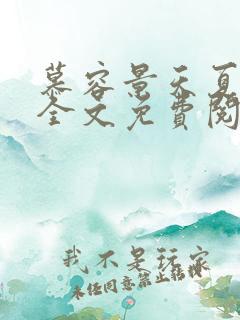 慕容景天夏
全文免费阅
我不是玩家
未经同意禁止转载